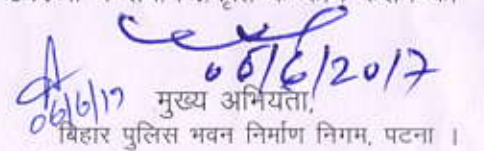 06/6/2017
06/6/17
मुख्य अभियंता,
बिहार पुलिस भवन निर्माण निगम, पटना ।